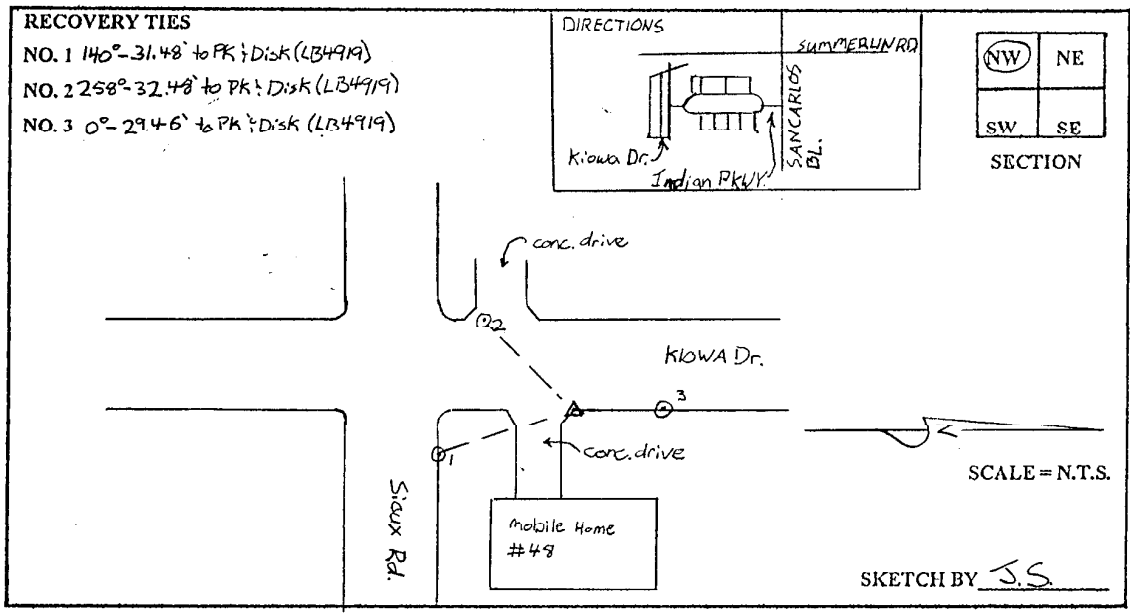 RECOVERY TIES
NO. 1 140°-31.48' to PK & Disk (LB4919)
NO. 2 258°-32.48' to PK & Disk (LB4919)
NO. 3 0°-29.46' to PK & Disk (LB4919)
DIRECTIONS
SUMMERLIN RD
SANCARLOS BL.
Kiowa Dr.
Indian PKWY.
NW NE
SW SE
SECTION
conc. drive
2
KIOWA Dr.
3
1
conc. drive
Sioux Rd.
Mobile Home
#48
SCALE = N.T.S.
SKETCH BY J.S.